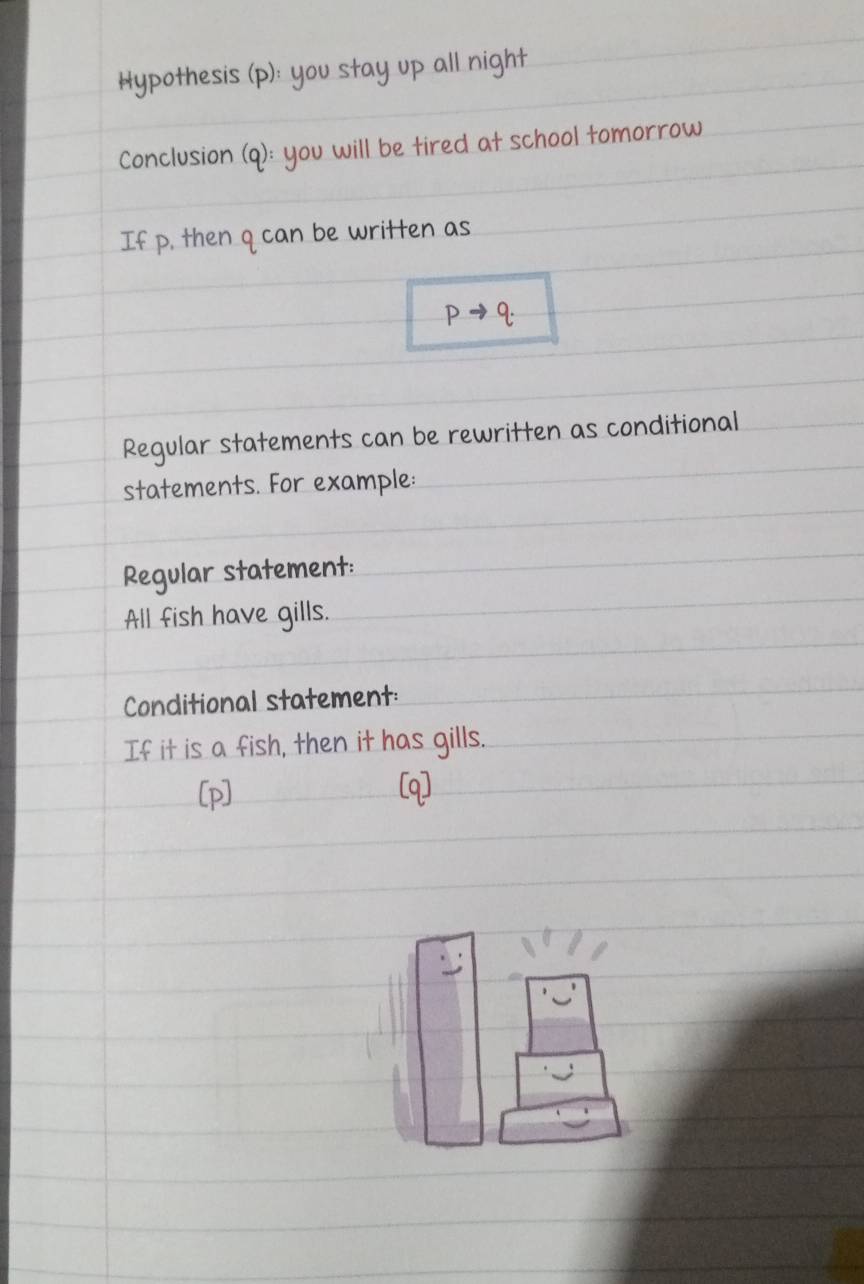 Hypothesis (p): you stay up all night
Conclusion (q): you will be tired at school tomorrow
If p, then q can be written as
p → q.
Regular statements can be rewritten as conditional
statements. For example:
Regular statement:
All fish have gills.
Conditional statement:
If it is a fish, then it has gills.
[p] [q]